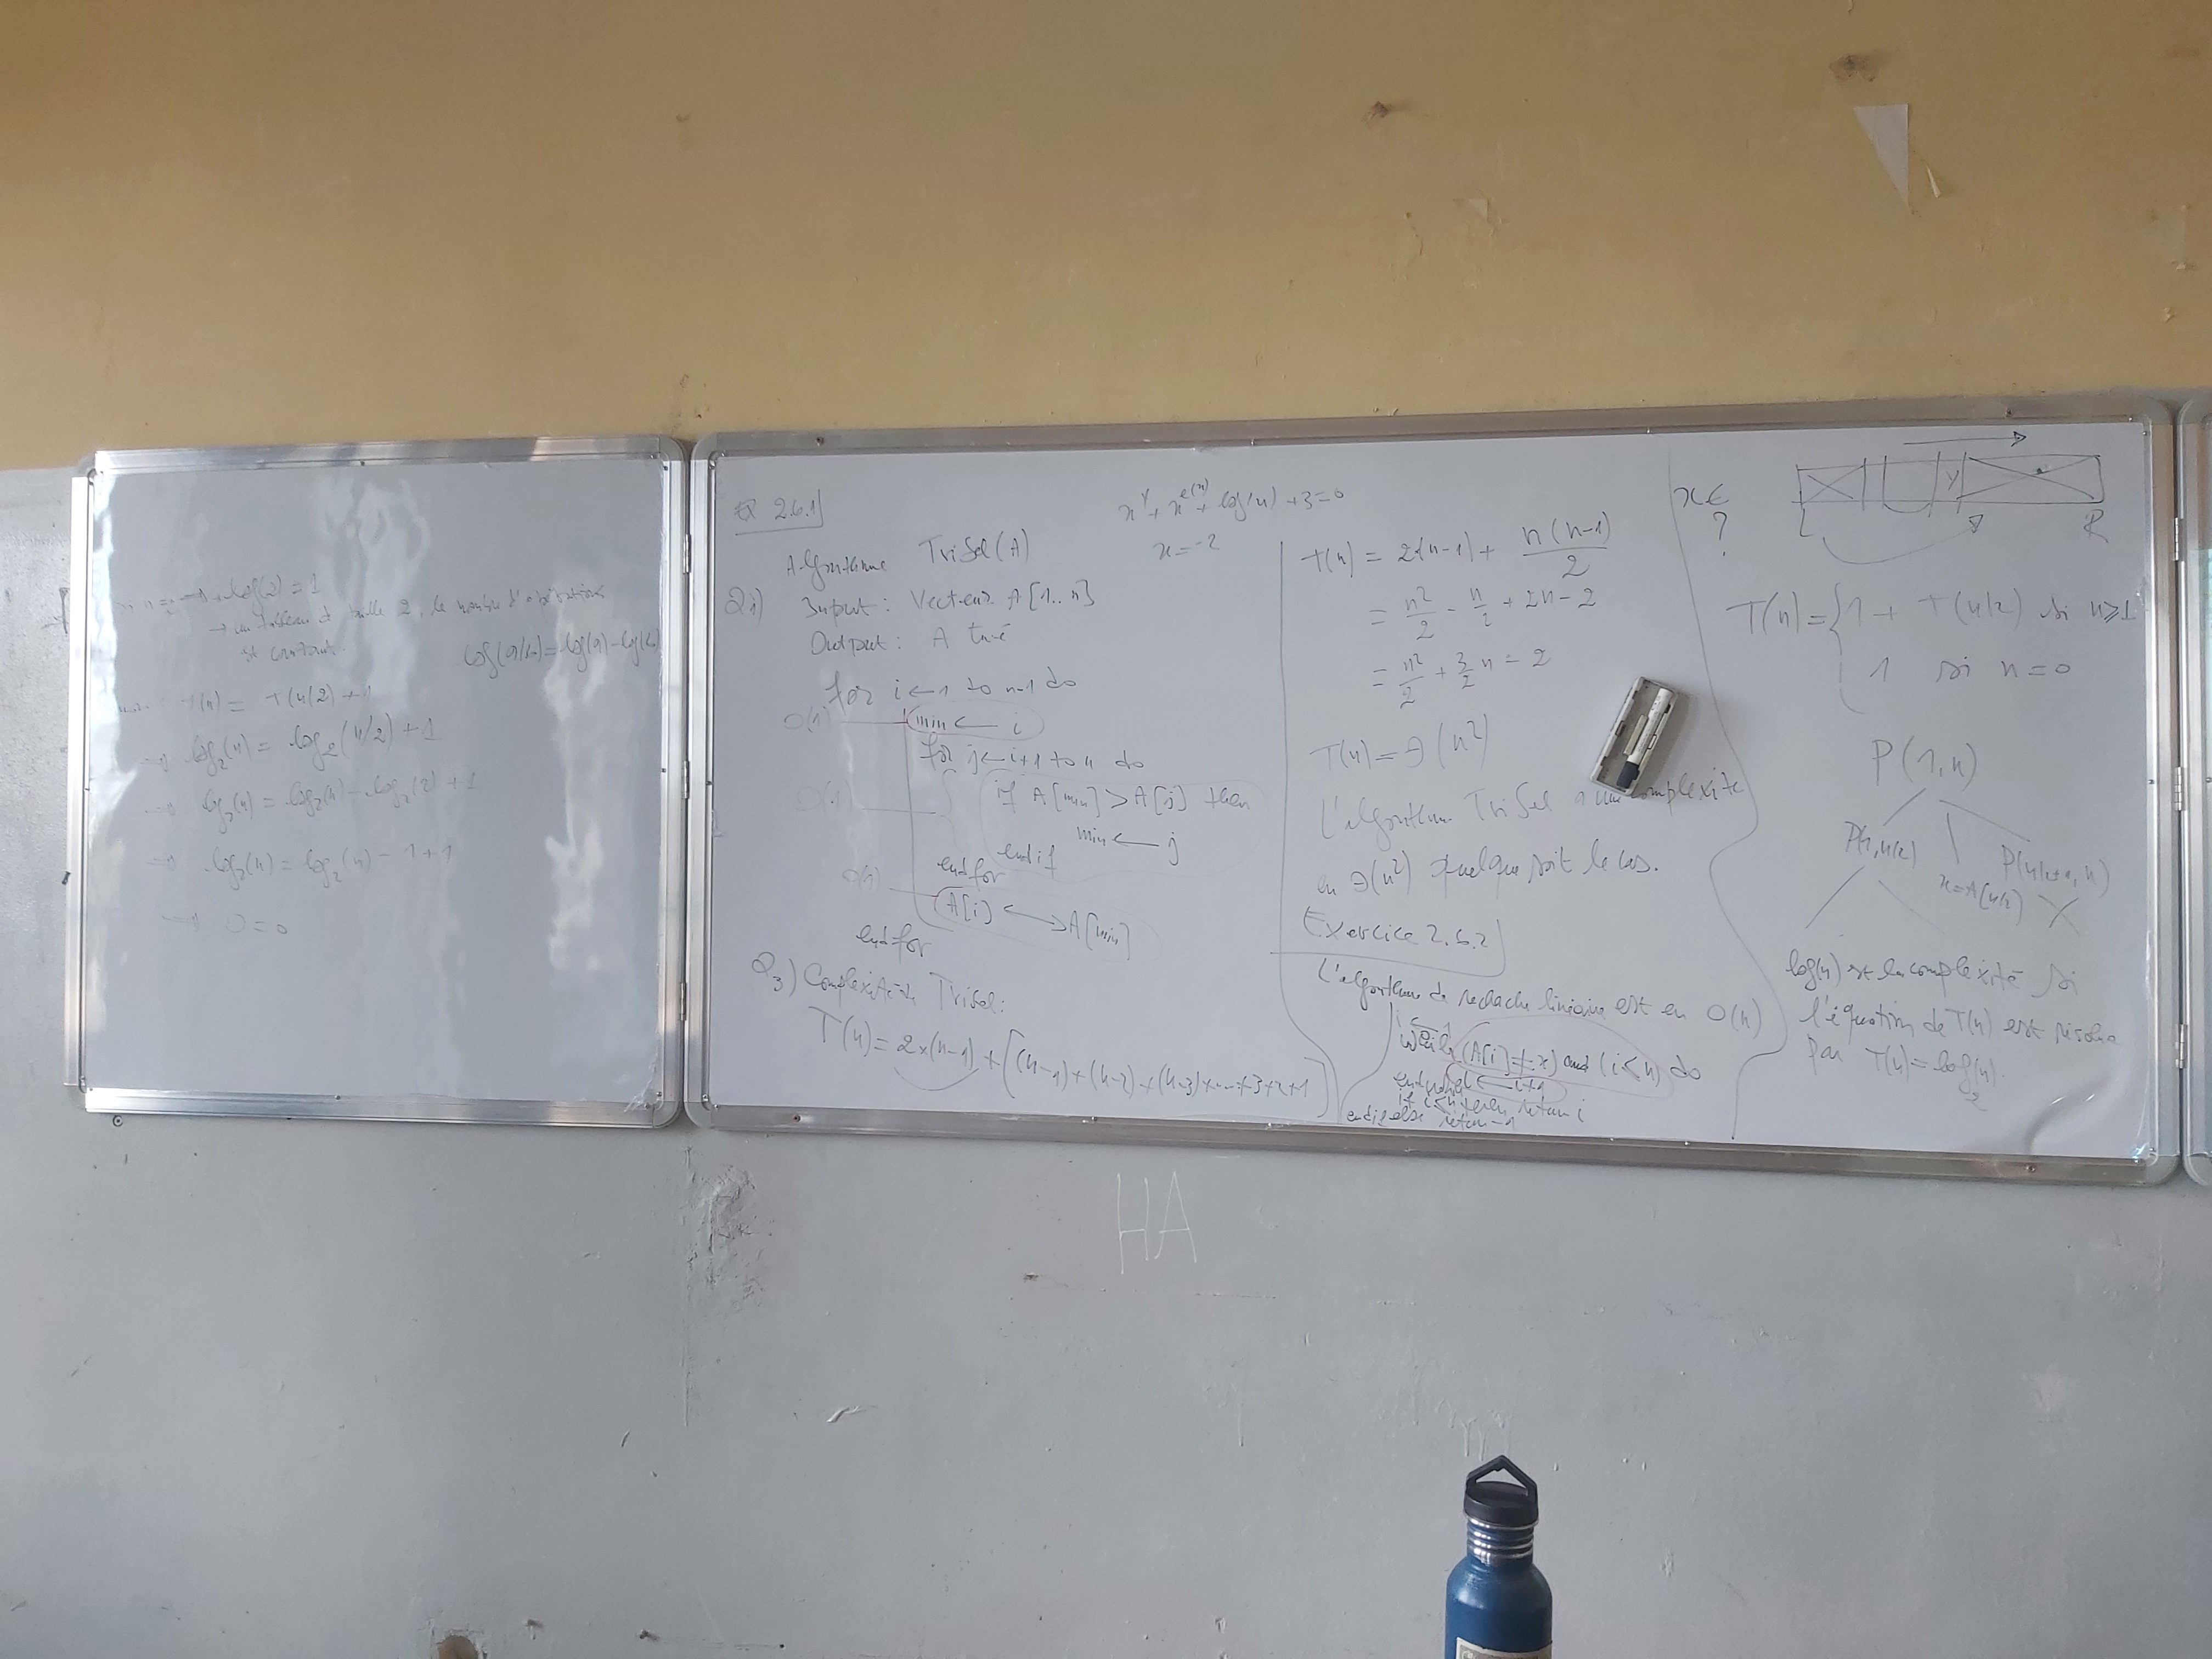 log(2) = 1
→ un tableau de taille 2, le nombre d'opérations
est constant.
log(a/b) = log(a) - log(b)
T(n) = T(n/2) + 1
→ log₂(n) = log₂(n/2) + 1
→ log₂(n) = log₂(n) - log₂(2) + 1
→ log₂(n) = log₂(n) - 1 + 1
→ 0 = 0
2.6.1
x^y + x^e(n) + log(n) + 3 = 0
x = -2
Algorithme TriSel(A)
Q1) Input : Vecteur A[1..n]
Output : A trié
for i ← 1 to n-1 do
O(1) min ← i
for j ← i+1 to n do
O(1) if A[min] > A[j] then
min ← j
endif
endfor
O(1) A[i] ↔ A[min]
endfor
Q3) Complexité de TriSel :
T(n) = 2×(n-1) + [(n-1)+(n-2)+(n-3)+...+3+2+1]
T(n) = 2(n-1) + n(n-1)/2
= n²/2 - n/2 + 2n - 2
= n²/2 + 3/2 n - 2
T(n) = Θ(n²)
L'algorithme TriSel a une complexité
en Θ(n²) quelque soit le cas.
Exercice 2.6.2
L'algorithme de recherche linéaire est en O(n)
i ← 1
while (A[i] ≠ x) and (i < n) do
i ← i+1
endwhile
if i < n then return i
else return -1
endif
x ∈
?
y
L R
T(n) = { 1 + T(n/2) si n ≥ 1
1 si n = 0
P(1,n)
P(1,n/2) x = A[n/2] P(n/2+1, n)
log(n) est la complexité si
l'équation de T(n) est résolue
par T(n) = log₂(n).
HA